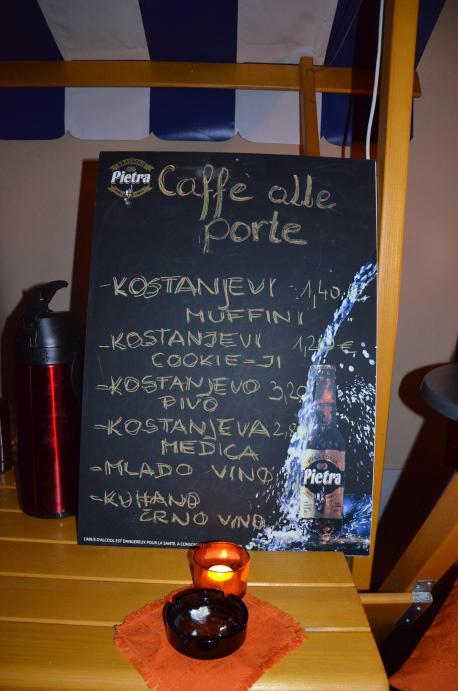 Pietra
Caffè alle
porte
- KOSTANJEVI 1,40 €
MUFFINI
- KOSTANJEVI 1,20 €
COOKIE-JI
- KOSTANJEVO 3,20
PIVO
- KOSTANJEVA
MEDICA
- MLADO VINO
- KUHANO
ČRNO VINO
Pietra
L'ABUS D'ALCOOL EST DANGEREUX POUR LA SANTÉ. A CONSOM